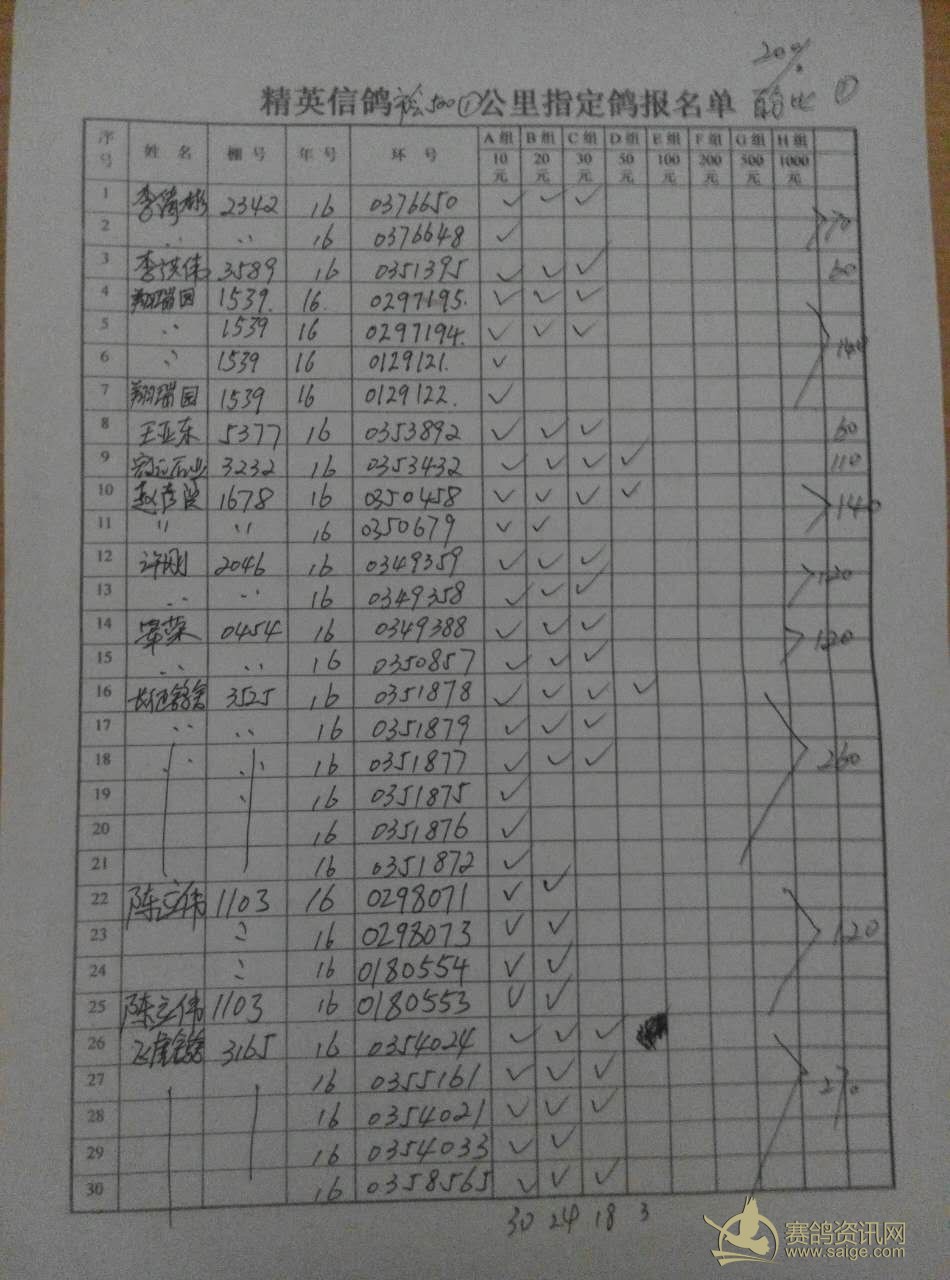 20%
精英信鸽 500① 公里指定鸽报名单 百分比 ①
序号 姓名 棚号 年号 环号 A组 10元 B组 20元 C组 30元 D组 50元 E组 100元 F组 200元 G组 500元 H组 1000元
1 2342 16 0376650 ✓ ✓ ✓
2 〃 〃 16 0376648 ✓ 70
3 3589 16 0351395 ✓ ✓ ✓ 60
4 翔瑞园 1539. 16. 0297195. ✓ ✓ ✓
5 〃 1539 16 0297194. ✓ ✓ ✓
6 〃 1539 16 0129121. ✓ 140
7 翔瑞园 1539 16 0129122. ✓
8 王亚东 5377 16 0353892 ✓ ✓ ✓ 60
9 3232 16 0353432 ✓ ✓ ✓ ✓ 110
10 1678 16 0350458 ✓ ✓ ✓ ✓ 140
11 〃 〃 16 0350679 ✓ ✓
12 许刚 2046 16 0349359 ✓ ✓ ✓ 120
13 〃 〃 16 0349358 ✓ ✓ ✓
14 0454 16 0349388 ✓ ✓ ✓ 120
15 〃 〃 16 0350857 ✓ ✓ ✓
16 3525 16 0351878 ✓ ✓ ✓ ✓
17 〃 〃 16 0351879 ✓ ✓ ✓
18 〃 〃 16 0351877 ✓ ✓ ✓ 260
19 〃 16 0351875 ✓
20 16 0351876 ✓
21 16 0351872 ✓
22 陈立伟 1103 16 0298071 ✓ ✓
23 〃 16 0298073 ✓ ✓ 120
24 〃 16 0180554 ✓ ✓
25 陈立伟 1103 16 0180553 ✓ ✓
26 3165 16 0354024 ✓ ✓ ✓
27 16 0355161 ✓ ✓ ✓ 270
28 16 0354021 ✓ ✓ ✓
29 16 0354033 ✓ ✓
30 16 0358565 ✓ ✓ ✓
30 24 18 3
赛鸽资讯网
www.saige.com